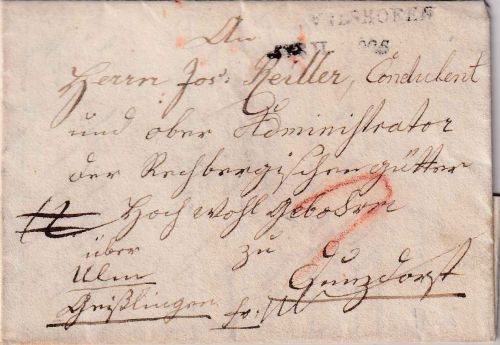 VILSHOFEN
An
Herrn Jos: Reiller, Condulent
und ober Administrator
der Rechbergischen gütter
Hoch wohl Gebohren
über zu
Ulm
Geißlingen
fr: